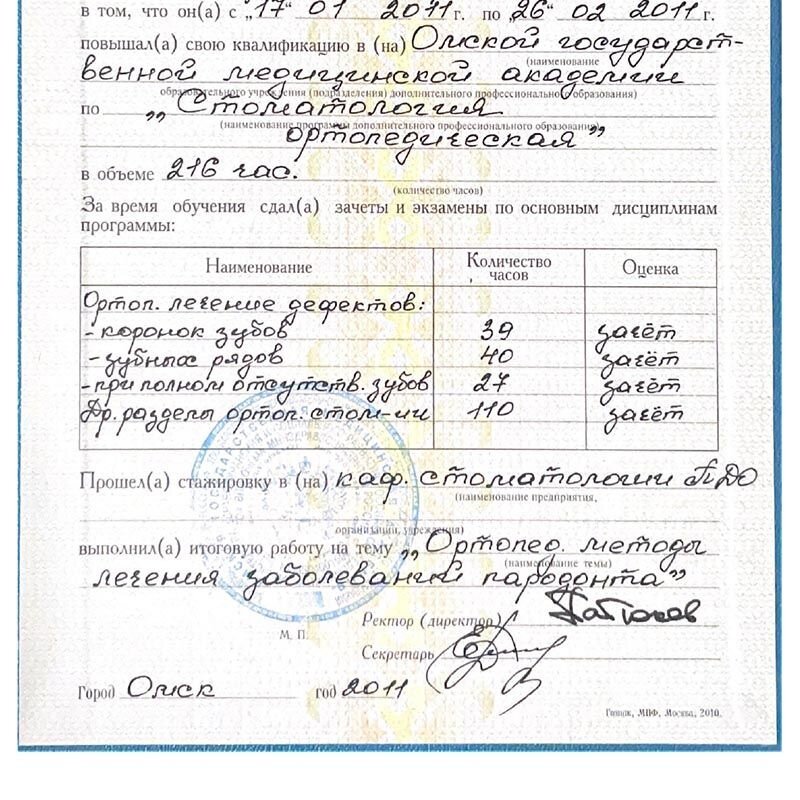 в том, что он(а) с „17“ 01 2011 г. по „26“ 02 2011 г.
повышал(а) свою квалификацию в (на) Омской государст-
(наименование
венной медицинской академии
образовательного учреждения (подразделения) дополнительного профессионального образования)
по „Стоматология
(наименование программы дополнительного профессионального образования)
ортопедическая”
в объеме 216 час.
(количество часов)
За время обучения сдал(а) зачеты и экзамены по основным дисциплинам
программы:
Наименование Количество часов Оценка
Ортоп. лечение дефектов:
- коронок зубов 39 зачёт
- зубных рядов 40 зачёт
- при полном отсутств. зубов 27 зачёт
Др. разделы ортоп. стом-ии 110 зачёт
Прошел(а) стажировку в (на) каф. стоматологии ПДО
(наименование предприятия,
организации, учреждения)
выполнил(а) итоговую работу на тему „Ортопед. методы
(наименование темы)
лечения заболеваний пародонта”
Ректор (директор)
М. П.
Секретарь
Город Омск год 2011
Гознак, МПФ, Москва, 2010.